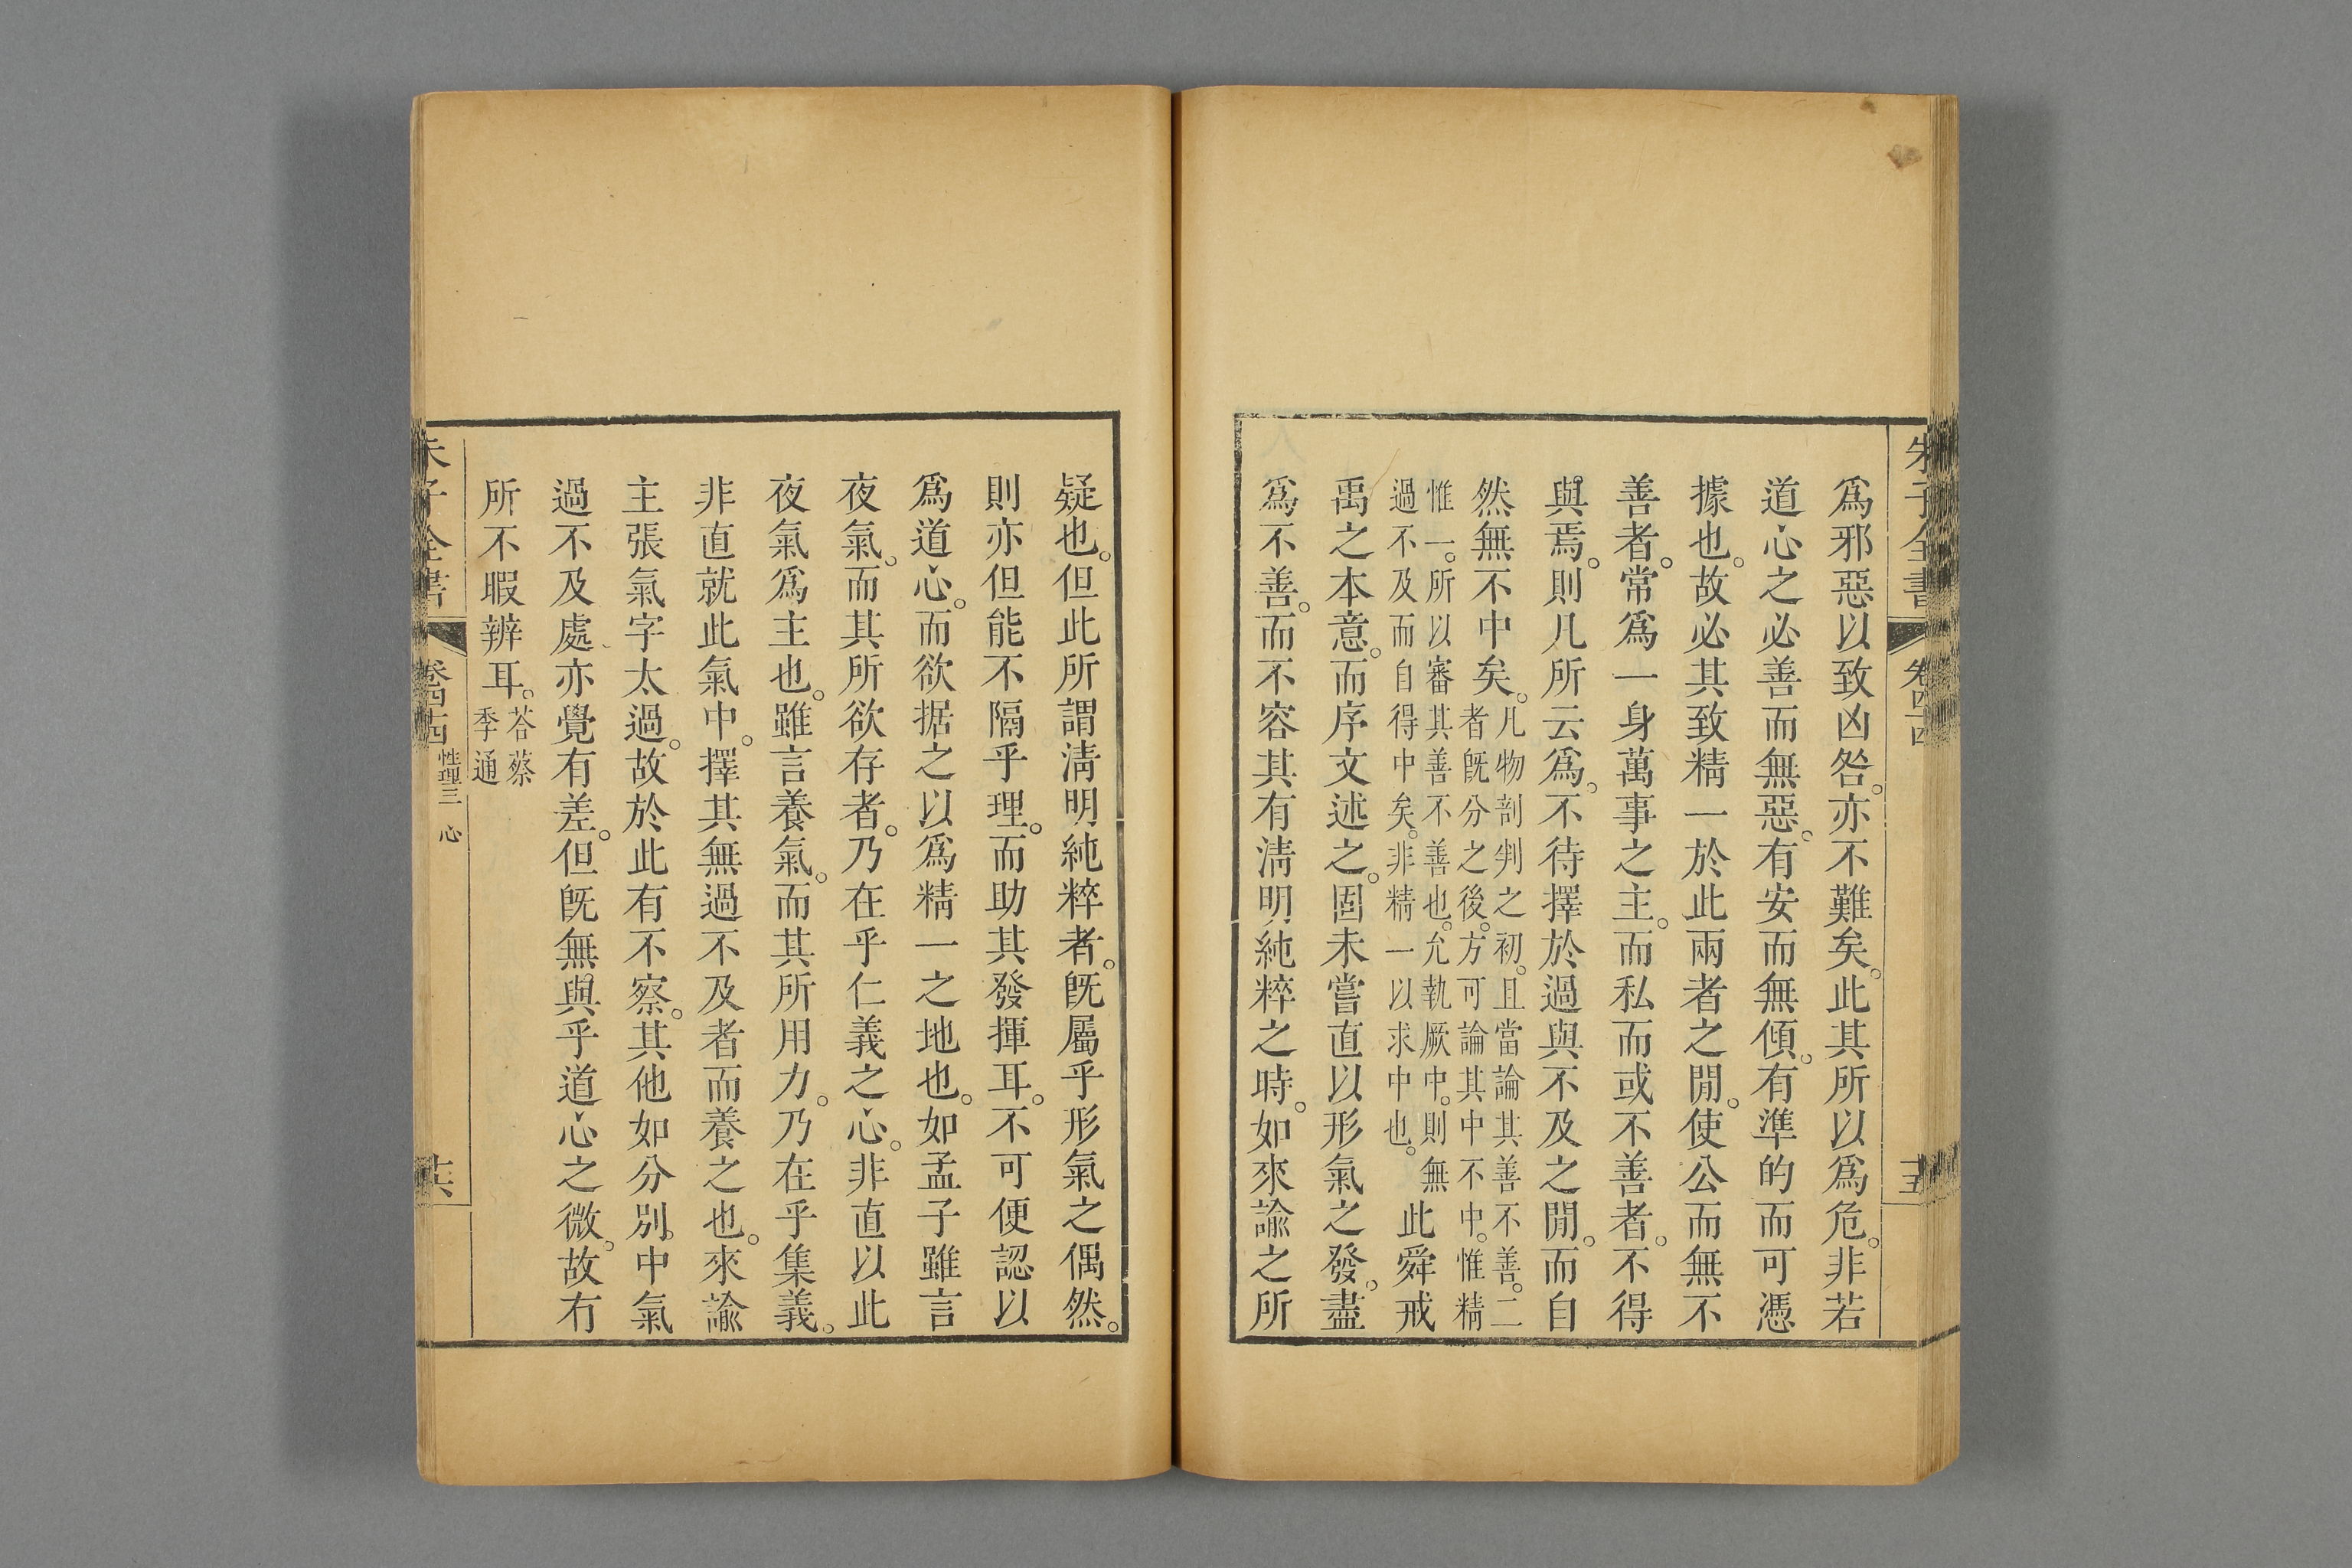 朱子全書 卷四十四 十五
爲邪惡以致凶咎。亦不難矣。此其所以爲危。非若
道心之必善而無惡。有安而無傾。有準的而可憑
據也。故必其致精一於此兩者之閒。使公而無不
善者。常爲一身萬事之主。而私而或不善者。不得
與焉。則凡所云爲。不待擇於過與不及之閒。而自
然無不中矣。
凡物剖判之初。且當論其善不善。二
者旣分之後。方可論其中不中。惟精
惟一。所以審其善不善也。允執厥中。則無
過不及而自得中矣。非精一以求中也。
此舜戒
禹之本意。而序文述之。固未嘗直以形氣之發。盡
爲不善。而不容其有淸明純粹之時。如來諭之所
疑也。但此所謂淸明純粹者。旣屬乎形氣之偶然。
則亦但能不隔乎理。而助其發揮耳。不可便認以
爲道心。而欲据之以爲精一之地也。如孟子雖言
夜氣。而其所欲存者。乃在乎仁義之心。非直以此
夜氣爲主也。雖言養氣。而其所用力。乃在乎集義。
非直就此氣中。擇其無過不及者而養之也。來諭
主張氣字太過。故於此有不察。其他如分別中氣
過不及處、亦覺有差。但旣無與乎道心之微。故有
所不暇辨耳。
荅蔡
季通
朱子全書 卷四十四 性理三 心 十六